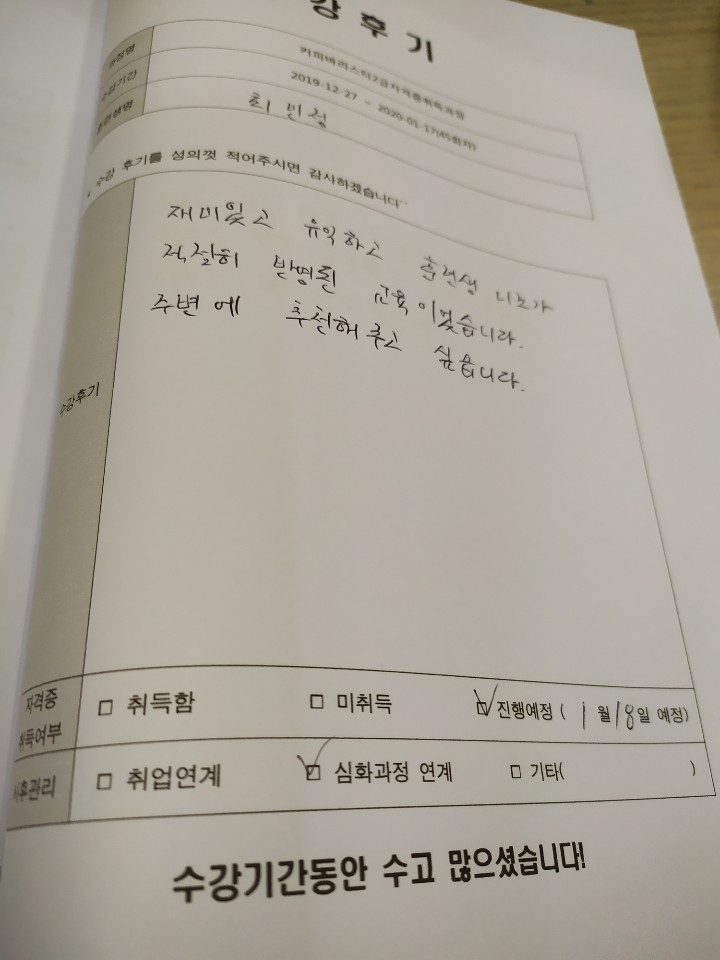 강후기
과정명 커피바리스타2급자격증취득과정
수강기간 2019-12-27 ~ 2020-01-17(45회차)
훈련생명 최민정
수강 후기를 성의껏 적어주시면 감사하겠습니다^^
재미있고 유익하고 훈련생 니즈가
적절히 반영된 교육이었습니다.
수강후기
주변에 추천해주고 싶습니다.
자격증 취득여부 □ 취득함 □ 미취득 ☑ 진행예정 ( 1월 18일 예정)
사후관리 □ 취업연계 ☑ 심화과정 연계 □ 기타( )
수강기간동안 수고 많으셨습니다!